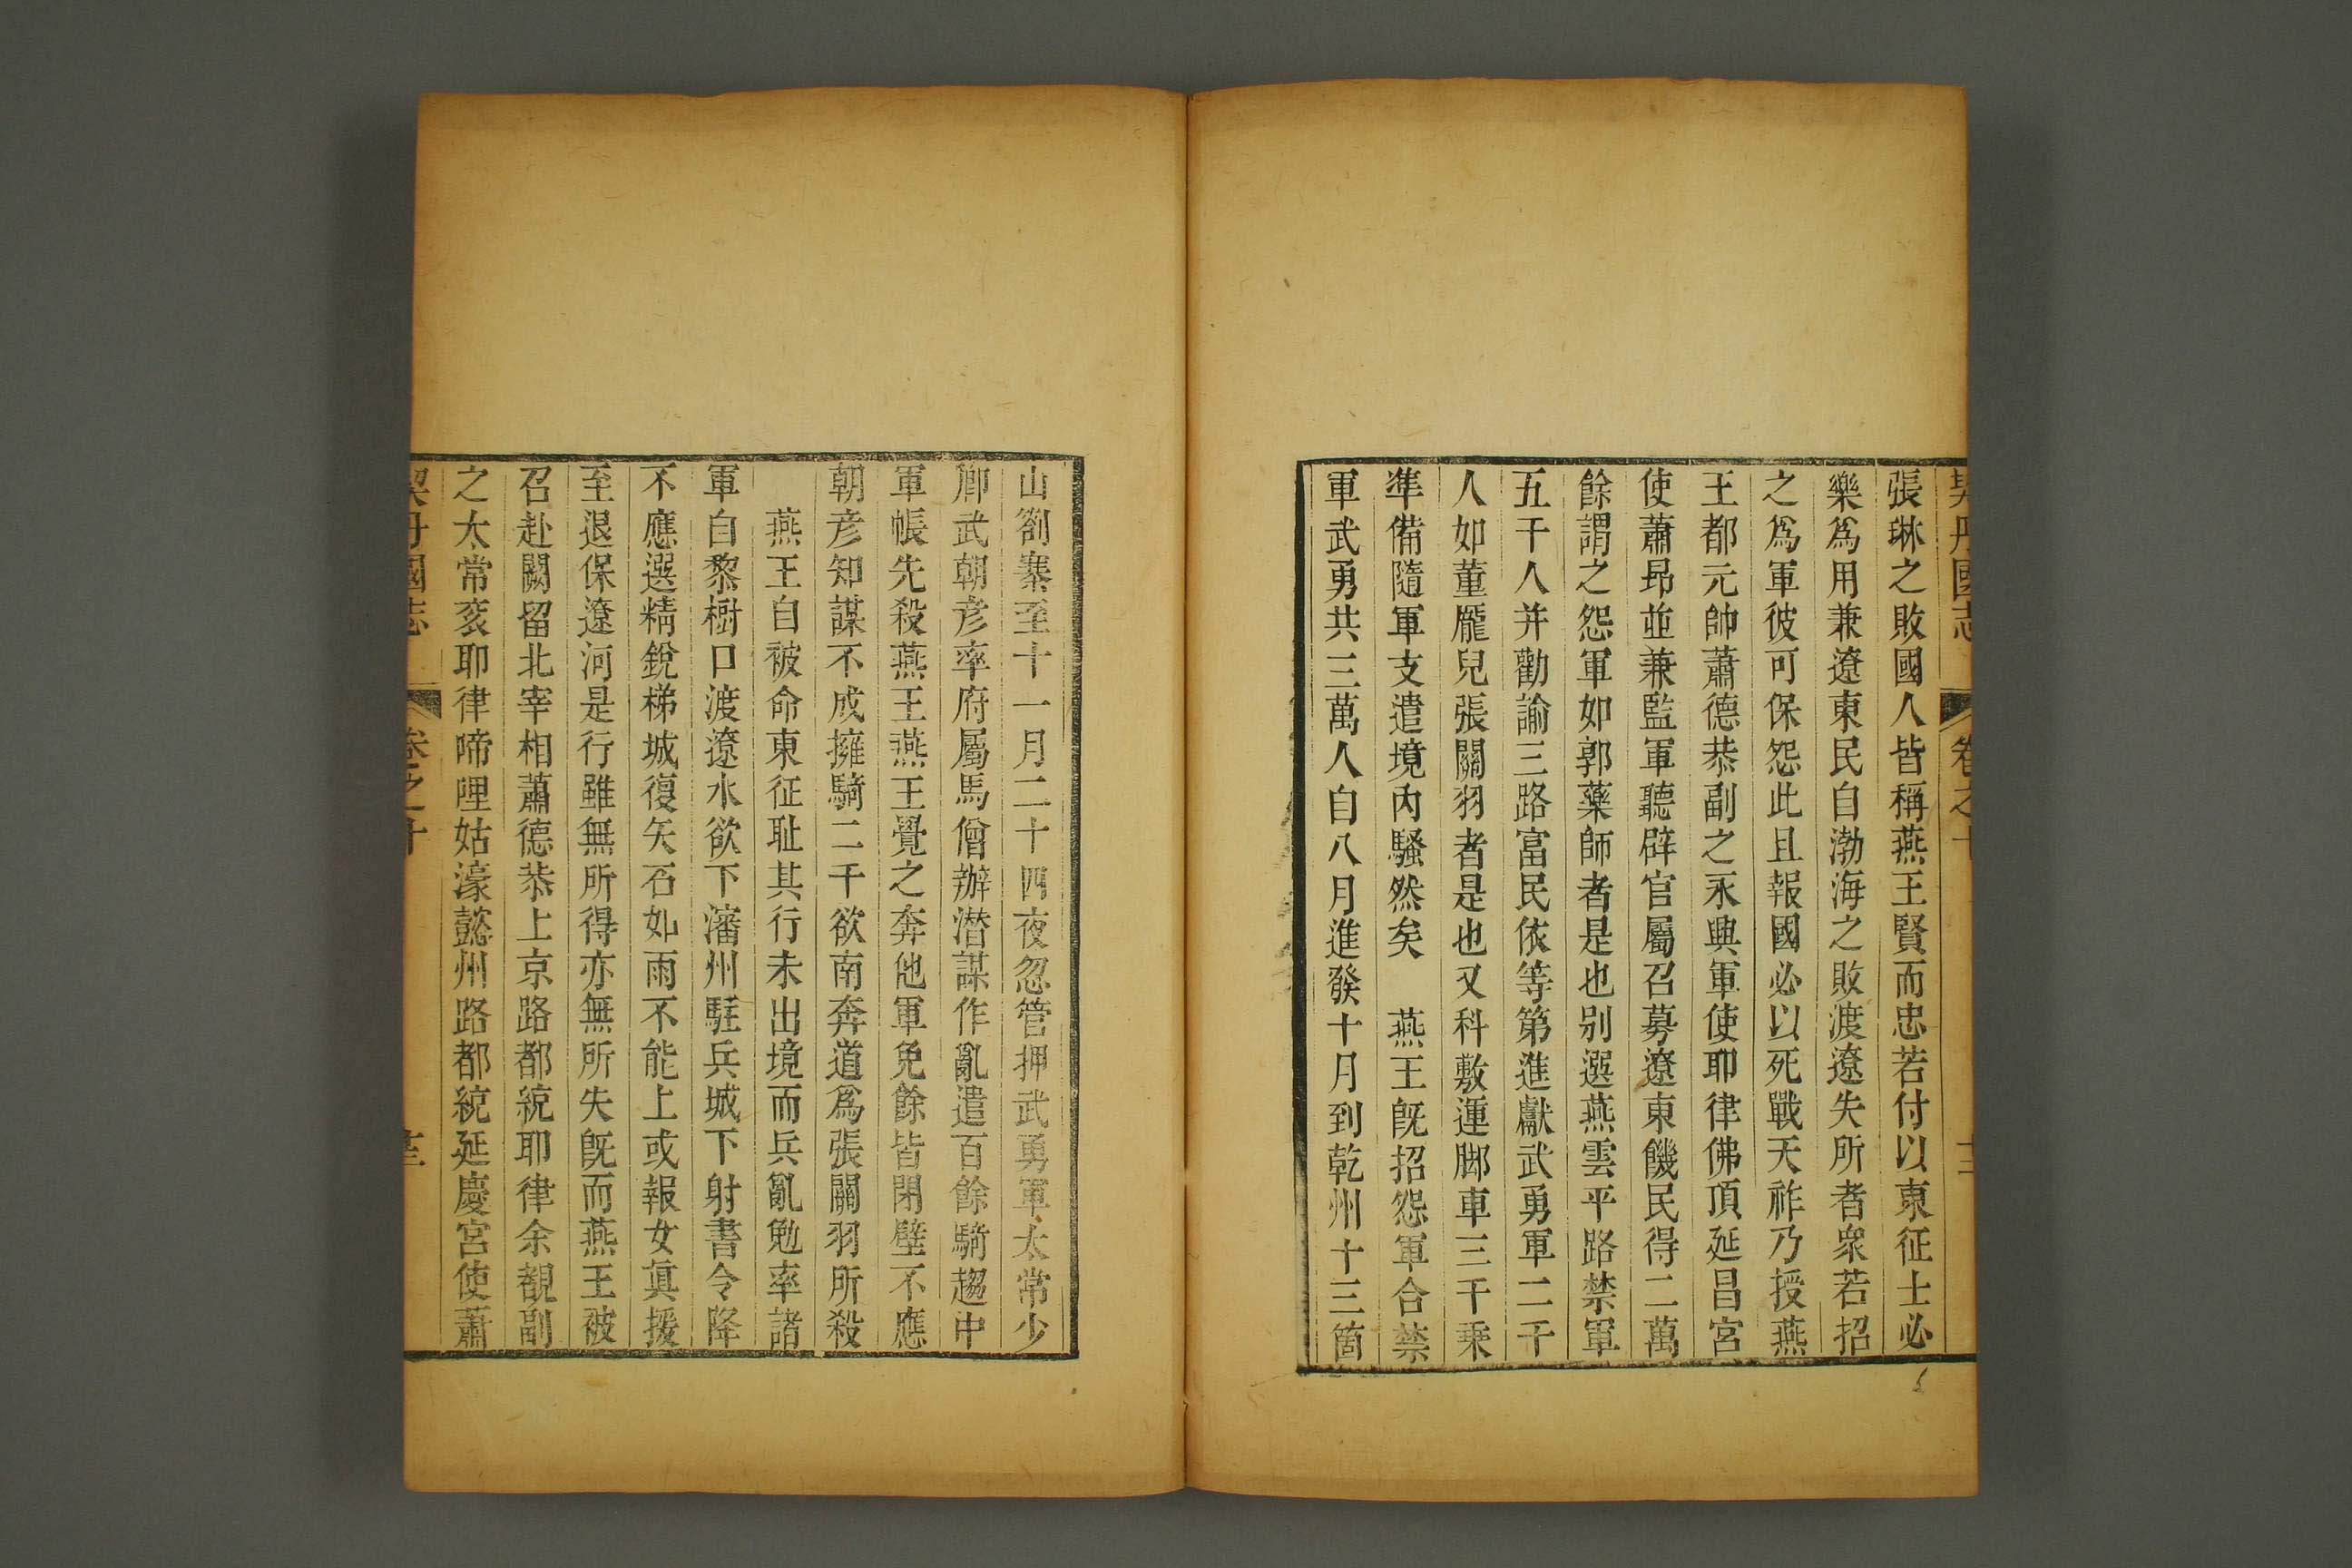 契丹國志 卷之十
張琳之敗國人皆稱燕王賢而忠若付以東征士必
樂爲用兼遼東民自渤海之敗渡遼失所者衆若招
之爲軍彼可保怨此且報國必以死戰天祚乃授燕
王都元帥蕭德恭副之永興軍使耶律佛頂延昌宮
使蕭昂並兼監軍聽辟官屬召募遼東饑民得二萬
餘謂之怨軍如郭藥師者是也别選燕雲平路禁軍
五千人并勸諭三路富民依等第進獻武勇軍二千
人如董龐兒張關羽者是也又科敷運脚車三千乘
準備隨軍支遣境內騷然矣　燕王旣招怨軍合禁
軍武勇共三萬人自八月進發十月到乾州十三箇
山劄寨至十一月二十四夜忽管押武勇軍太常少
卿武朝彦率府屬馬僧辦潜謀作亂遣百餘騎趨中
軍帳先殺燕王燕王覺之奔他軍免餘皆閉壁不應
朝彦知謀不成擁騎二千欲南奔道爲張關羽所殺
　燕王自被命東征耻其行未出境而兵亂勉率諸
軍自黎樹口渡遼水欲下瀋州駐兵城下射書令降
不應選精銳梯城復矢石如雨不能上或報女眞援
至退保遼河是行雖無所得亦無所失旣而燕王被
召赴闕留北宰相蕭德恭上京路都統耶律余覩副
之太常衮耶律啼哩姑濠懿州路都統延慶宮使蕭
契丹國志 卷之十